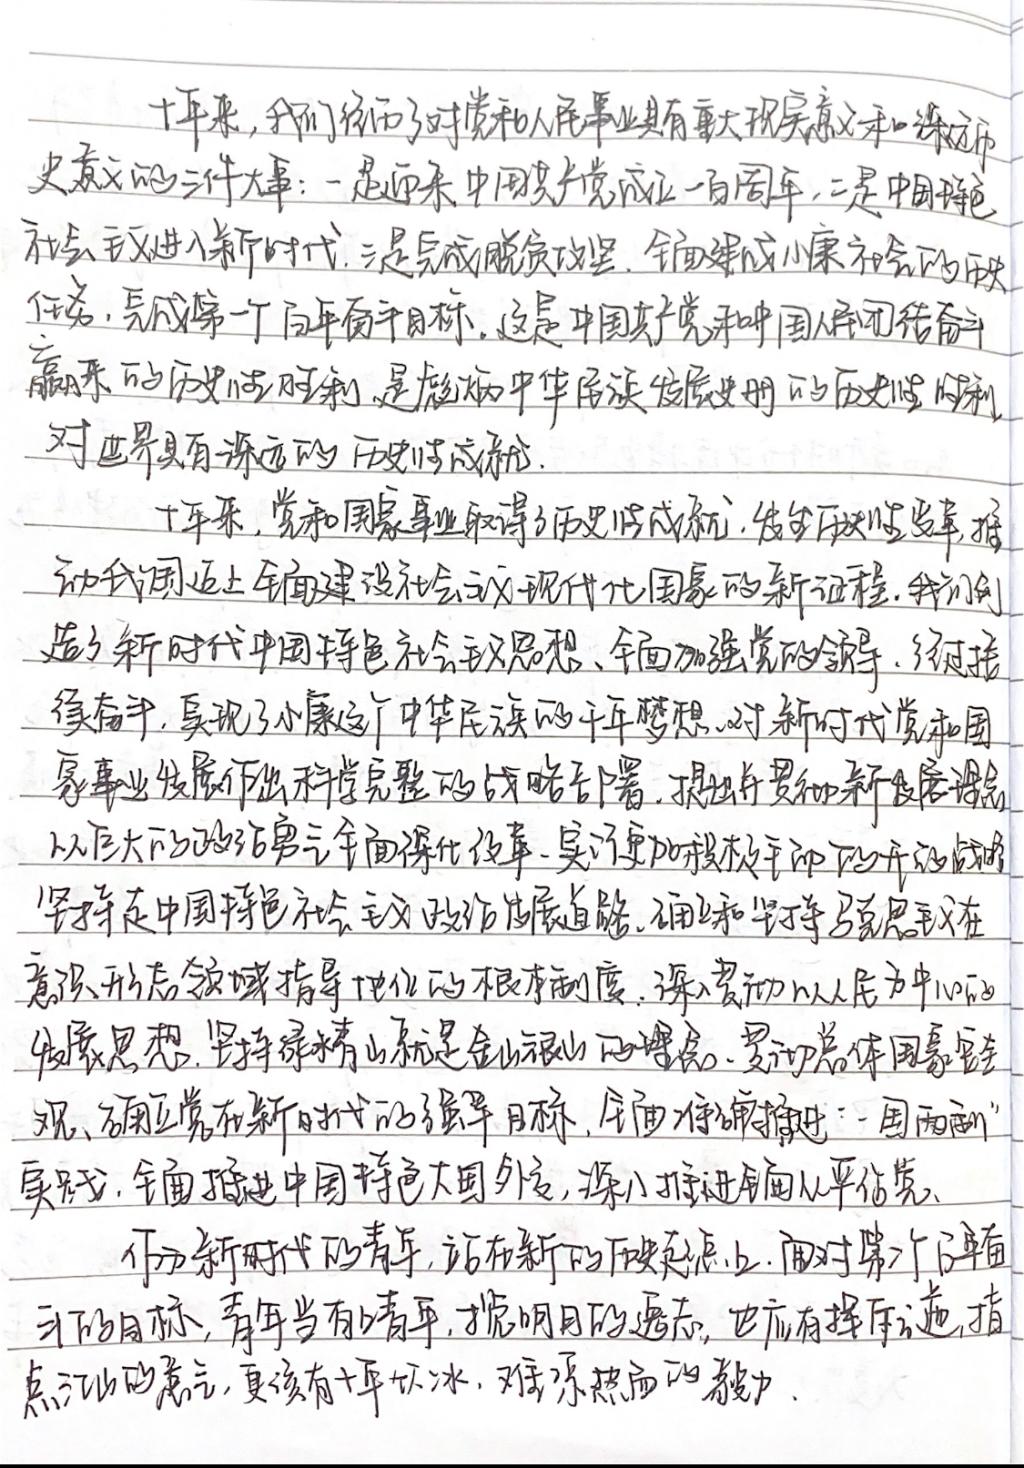 十年来，我们经历了对党和人民事业具有重大现实意义和深远历
史意义的三件大事：一是迎来中国共产党成立一百周年，二是中国特色
社会主义进入新时代，三是完成脱贫攻坚、全面建成小康社会的历史
任务，完成第一个百年奋斗目标，这是中国共产党和中国人民团结奋斗
赢来的历史性胜利，是彪炳中华民族发展史册的历史性胜利
对世界具有深远的历史性成就.
十年来，党和国家事业取得了历史性成就，发生历史性变革，推
动我国迈上全面建设社会主义现代化国家的新征程，我们创
造了新时代中国特色社会主义思想、全面加强党的领导，经过接
续奋斗，实现了小康这个中华民族的千年梦想、对新时代党和国
家事业发展作出科学完整的战略部署，提出并贯彻新发展理念
以巨大的政治勇气全面深化改革、实行更加积极主动的开放战略
坚持走中国特色社会主义政治发展道路、确立和坚持马克思主义在
意识形态领域指导地位的根本制度，深入贯彻以人民为中心的
发展思想，坚持绿水青山就是金山银山的理念、贯彻总体国家安全
观、确立党在新时代的强军目标，全面准确推进“一国两制”
实践，全面推进中国特色大国外交，深入推进全面从严治党、
作为新时代的青年，站在新的历史起点上，面对第二个百年奋
斗的目标，青年当有上青天，揽明月的远志，也应有挥斥方遒，指
点江山的意气，更该有十年饮冰，难凉热血的毅力.